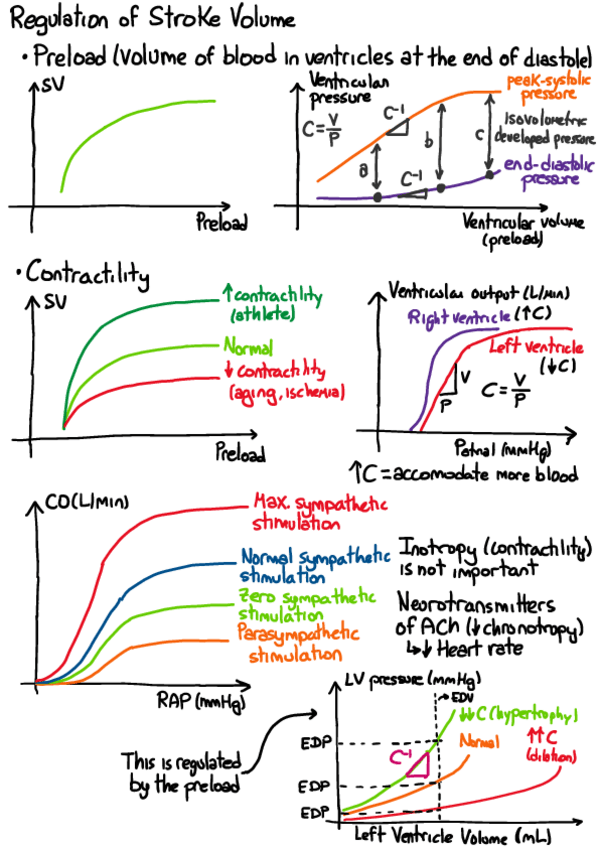 Regulation of Stroke Volume
• Preload (Volume of blood in ventricles at the end of diastole)
SV
Preload
Ventricular
pressure
C=V/P
C⁻¹
a
C⁻¹
b
c
peak-systolic
pressure
Isovolumetric
developed pressure
end-diastolic
pressure
Ventricular volume
(preload)
• Contractility
SV
↑contractility
(athlete)
Normal
↓ contractility
(aging, ischemia)
Preload
Ventricular output (L/min)
Right ventricle (↑C)
Left ventricle
(↓C)
V
P
C=V/P
(mmHg)
↑C = accomodate more blood
CO(L/min)
Max. sympathetic
stimulation
Normal sympathetic
stimulation
Zero sympathetic
stimulation
Parasympathetic
stimulation
RAP (mmHg)
Inotropy (contractility)
is not important
Neurotransmitters
of ACh (↓chronotropy)
↳↓ Heart rate
This is regulated
by the preload
LV pressure (mmHg)
→EDV
↓↓C (hypertrophy)
Normal
↑↑C
(dilation)
EDP
C⁻¹
EDP
EDP
Left Ventricle Volume (mL)